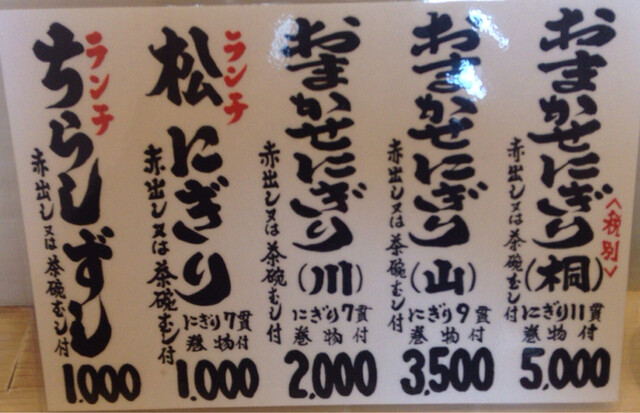 <税別>
おまかせにぎり(桐)
赤出し又は茶碗むし付
にぎり11貫
巻物付
5,000
おまかせにぎり(山)
赤出し又は茶碗むし付
にぎり9貫
巻物付
3,500
おまかせにぎり(川)
赤出し又は茶碗むし付
にぎり7貫
巻物付
2,000
ランチ
松にぎり
赤出し又は茶碗むし付
にぎり7貫
巻物付
1,000
ランチ
ちらしずし
赤出し又は茶碗むし付
1,000